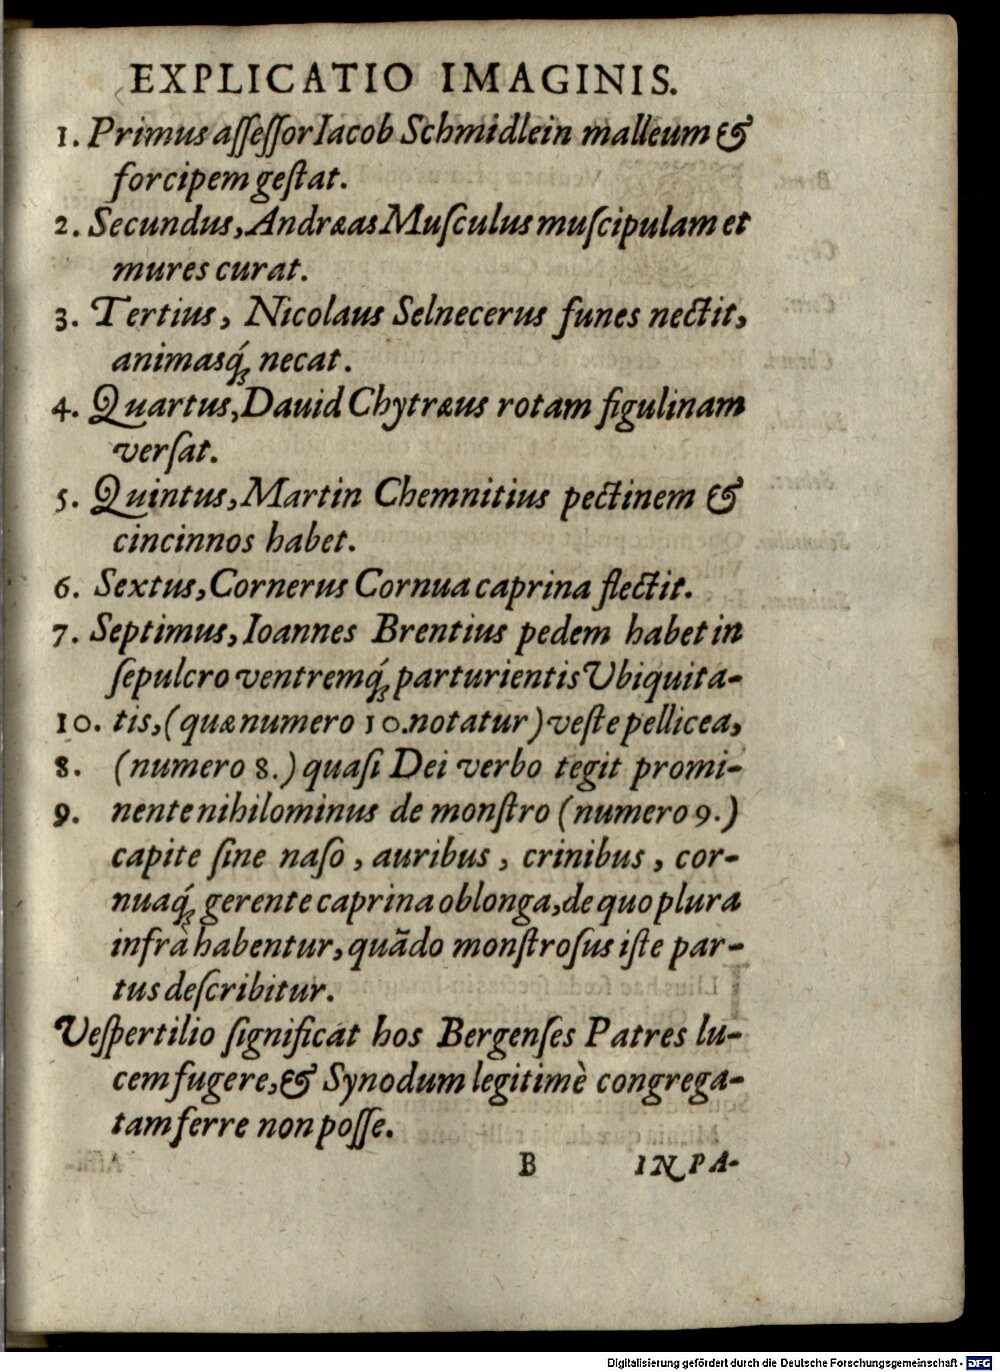 EXPLICATIO IMAGINIS.
1. Primus aſſeſſor Iacob Schmidlein malleum &
forcipem geſtat.
2. Secundus, Andræas Muſculus muſcipulam et
mures curat.
3. Tertius, Nicolaus Selnecerus funes nectit,
animasq́; necat.
4. Quartus, Dauid Chytræus rotam figulinam
verſat.
5. Quintus, Martin Chemnitius pectinem &
cincinnos habet.
6. Sextus, Cornerus Cornua caprina flectit.
7. Septimus, Ioannes Brentius pedem habet in
ſepulcro ventremq́; parturientis Vbiquita-
10. tis, (quæ numero 10. notatur) veſte pellicea,
8. (numero 8.) quaſi Dei verbo tegit promi-
9. nente nihilominus de monſtro (numero 9.)
capite ſine naſo, auribus, crinibus, cor-
nuaq́; gerente caprina oblonga, de quo plura
infrà habentur, quãdo monſtroſus iſte par-
tus deſcribitur.
Veſpertilio ſignificat hos Bergenſes Patres lu-
cem fugere, & Synodum legitimè congrega-
tam ferre non poſſe.
B IN PA-
Digitalisierung gefördert durch die Deutsche Forschungsgemeinschaft - DFG